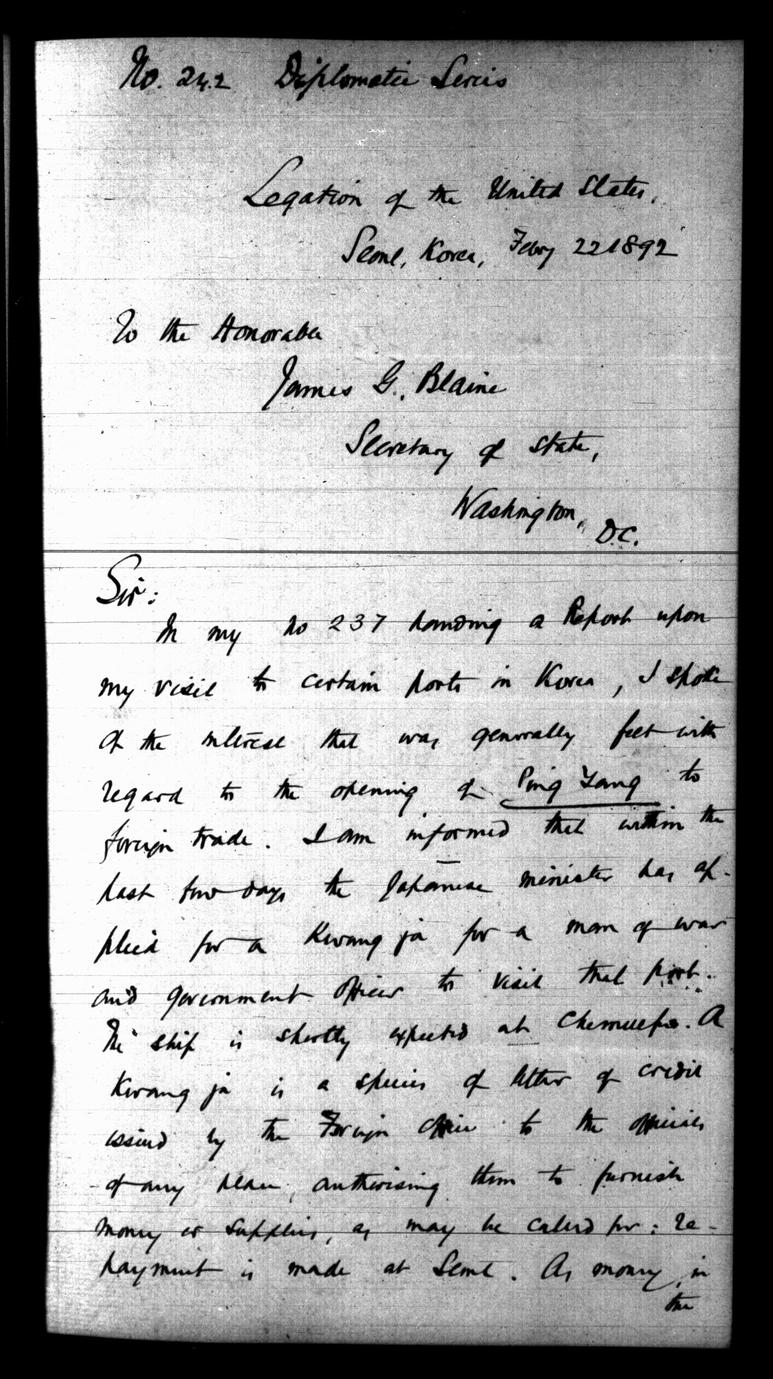 No. 242 Diplomatic Series
Legation of the United States,
Seoul, Korea, Feby 22 1892
To the Honorable
James G. Blaine
Secretary of State,
Washington,
D.C.
Sir:
In my No 237 handing a Report upon
my visit to certain ports in Korea, I spoke
of the interest that was generally felt with
regard to the opening of Ping Yang to
foreign trade. I am informed that within the
past few days the Japanese minister has ap-
plied for a Kwang ja for a man of war
and government officer to visit that port.
The ship is shortly expected at Chemulpo. A
Kwang ja is a species of letter of credit
issued by the Foreign Office to the officials
of any place, authorising them to furnish
money or supplies, as may be called for: re-
payment is made at Seoul. As money in
the